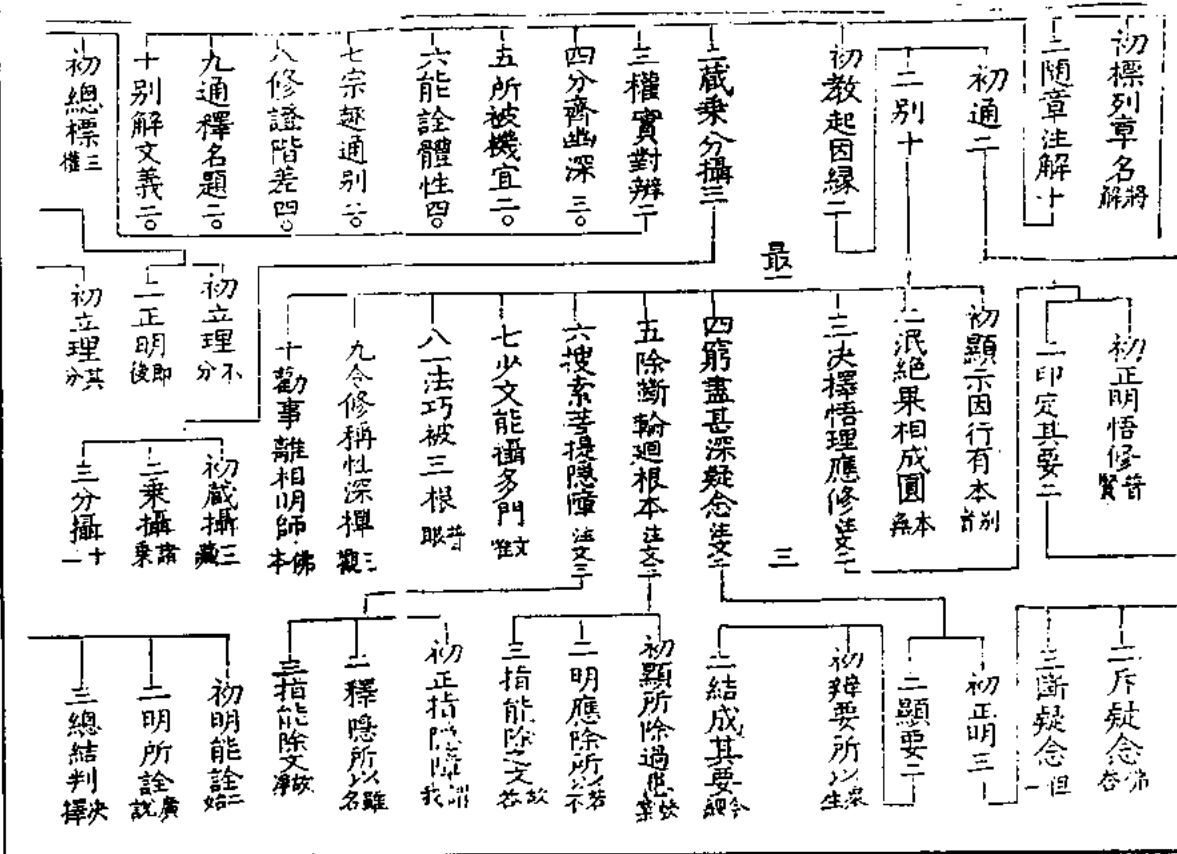 初標列章名將解
二隨章注解十
初通二
二別十
初教起因緣二
二藏乘分攝三
三權實對辨二
四分齊幽深三〇
五所被機宜二〇
六能詮體性四〇
七宗趣通別六〇
八修證階差四〇
九通釋名題二〇
十別解文義二〇
初總標三權
最一
初正明悟修普賢
二印定其要二
初顯示因行有本別首
二泯絕果相成圓本無
三決擇悟理應修注文二
四窮盡甚深疑念注文二
五除斷輪迴根本注文三
六搜索菩提隱障注文三
七少文能攝多門文唯
八一法巧被三根普眼
九令修稱性深禪三觀
十勸事離相明師佛本
初立理不分
二正明即後
初立理其分
三
初藏攝三藏
二乘攝諸乘
三分攝十一
二斥疑念佛答
三斷疑念但一
初正明三
二顯要二
初辨要所以眾生
二結成其要令
初顯所除過患
二明應除所以若不
三指能除之文故答
初正指隱障謂我
二釋隱所以雖名
三指能除文故淨
初明能詮二始
二明所詮廣說
三總結判決擇